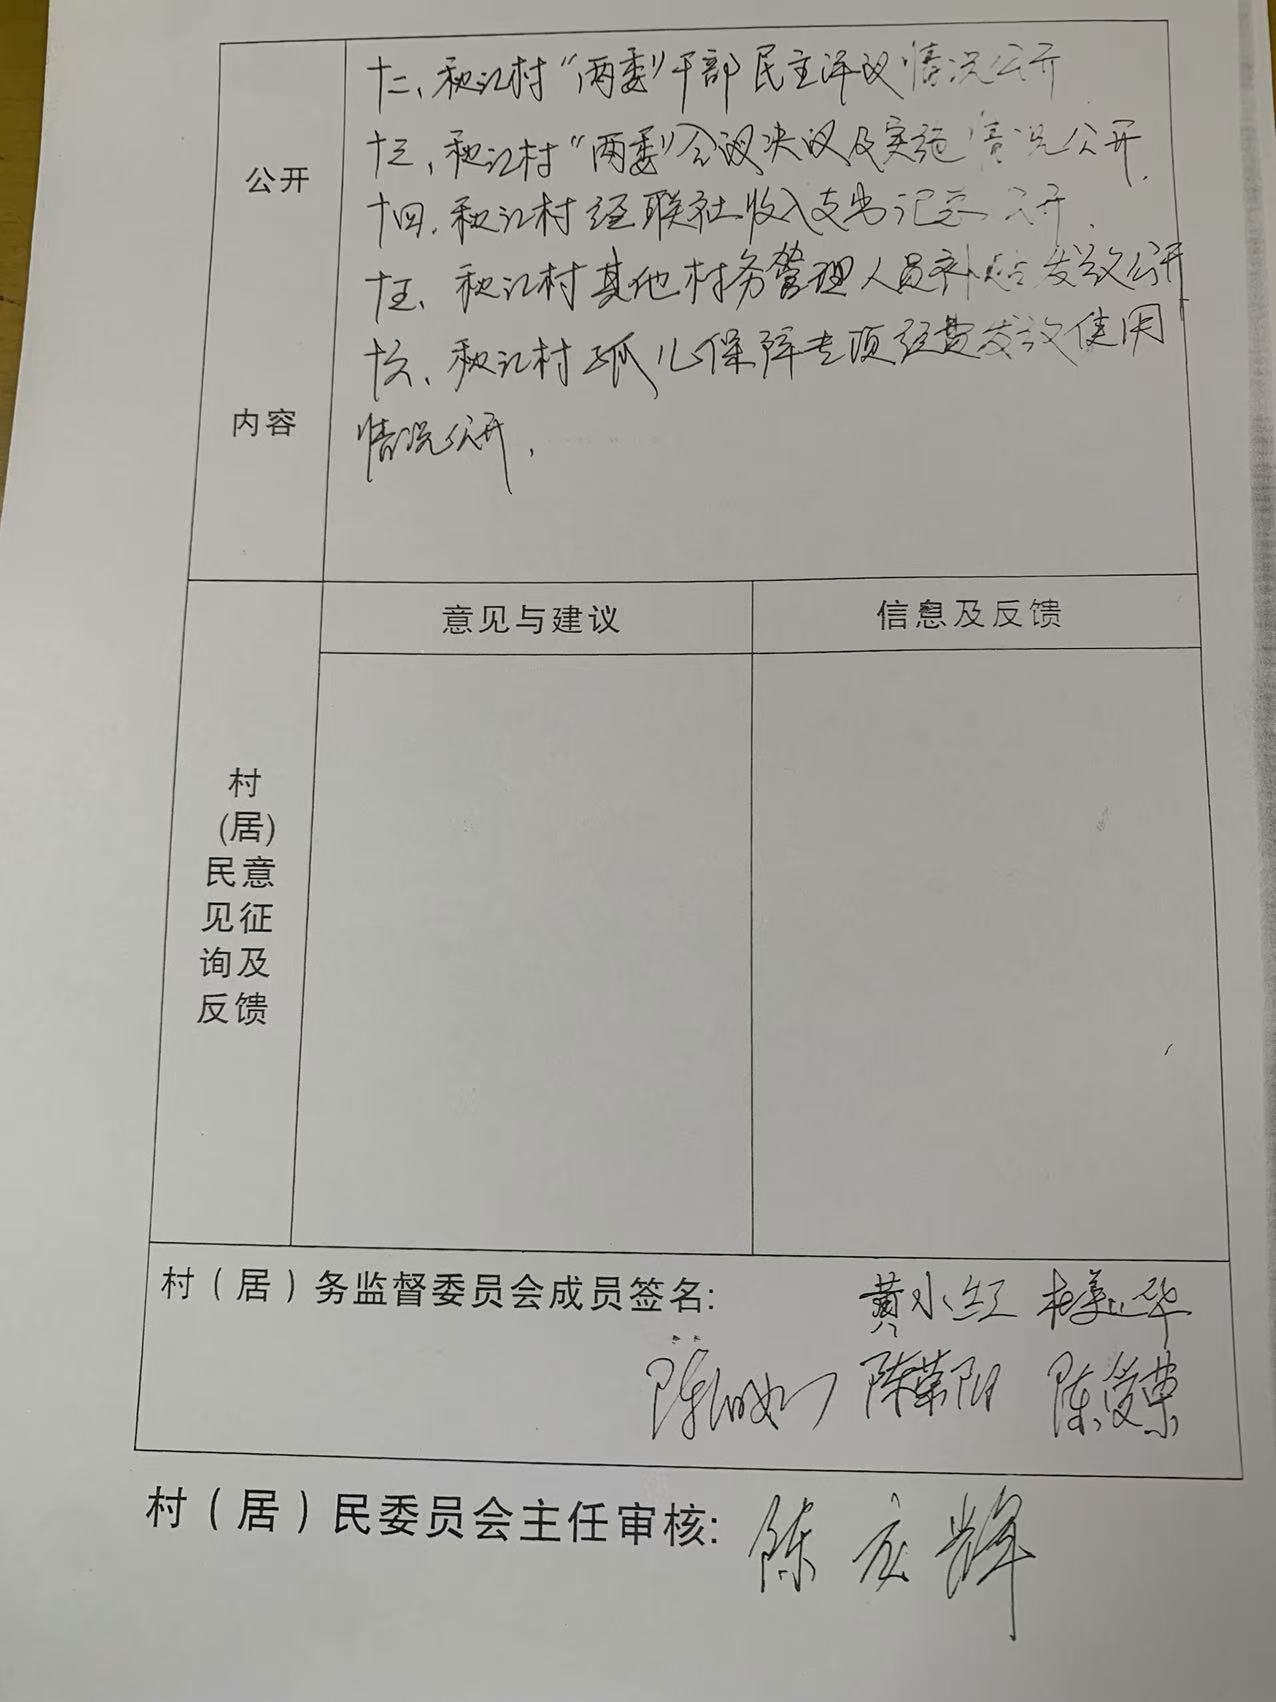 公开
内容
十二、秋江村“两委”干部民主评议情况公开
十三、秋江村“两委”会议决议及实施情况公开.
十四.秋江村经联社收入支出记录公开.
十五、秋江村其他村务管理人员补贴发放公开
十六、秋江村孤儿保障专项经费发放使用
情况公开.
村
(居)
民意
见征
询及
反馈
意见与建议
信息及反馈
村(居)务监督委员会成员签名: 黄小红
陈荣阳
村(居)民委员会主任审核: 陈宏辉